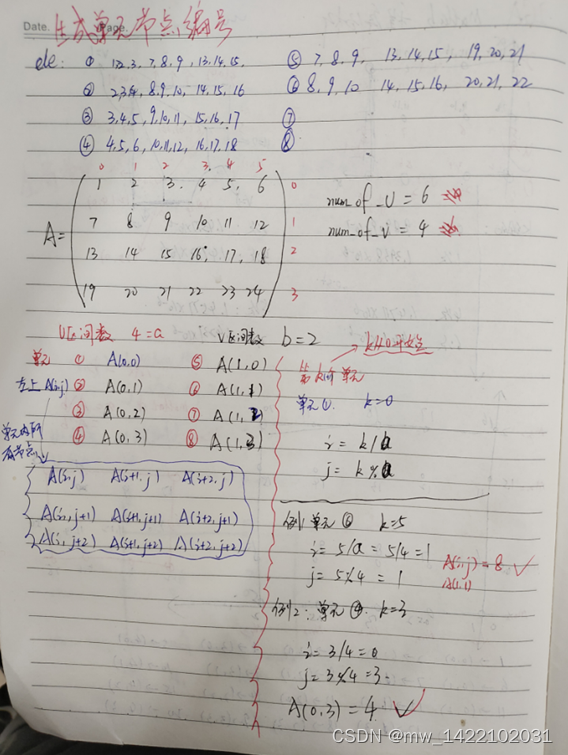 Date.
生成单元节点编号
ele: ① 1,2,3, 7, 8, 9, 13, 14, 15,
② 2,3,4, 8, 9, 10, 14, 15, 16
③ 3,4,5, 9,10,11, 15,16,17
④ 4,5,6, 10,11,12, 16,17,18
⑤ 7, 8, 9, 13, 14, 15, 19, 20, 21
⑥ 8, 9, 10 14, 15, 16, 20, 21, 22
⑦
⑧
0 1 2 3 4 5
1 2 3 4 5 6 0
A= 7 8 9 10 11 12 1
13 14 15 16 17 18 2
19 20 21 22 23 24 3
num_of_U = 6
num_of_V = 4
U区间数 4=a V区间数 b=2
单元 ① A(0,0) ⑤ A(1,0)
左上 A(i,j) ② A(0,1) ⑥ A(1,1)
③ A(0,2) ⑦ A(1,2)
④ A(0,3) ⑧ A(1,3)
单元内所有节点
A(i,j) A(i+1,j) A(i+2,j)
A(i,j+1) A(i+1,j+1) A(i+2,j+1)
A(i,j+2) A(i+1,j+2) A(i+2,j+2)
k从0开始
第k个单元
单元①. k=0
i = k/a
j = k%a
例1: 单元⑥ k=5
i = 5/a = 5/4 = 1
j = 5%4 = 1
A(i,j) = 8 ✓
A(1,1)
例2: 单元④. k=3
i = 3/4 = 0
j = 3%4 = 3
A(0,3) = 4 ✓
CSDN @mw_1422102031